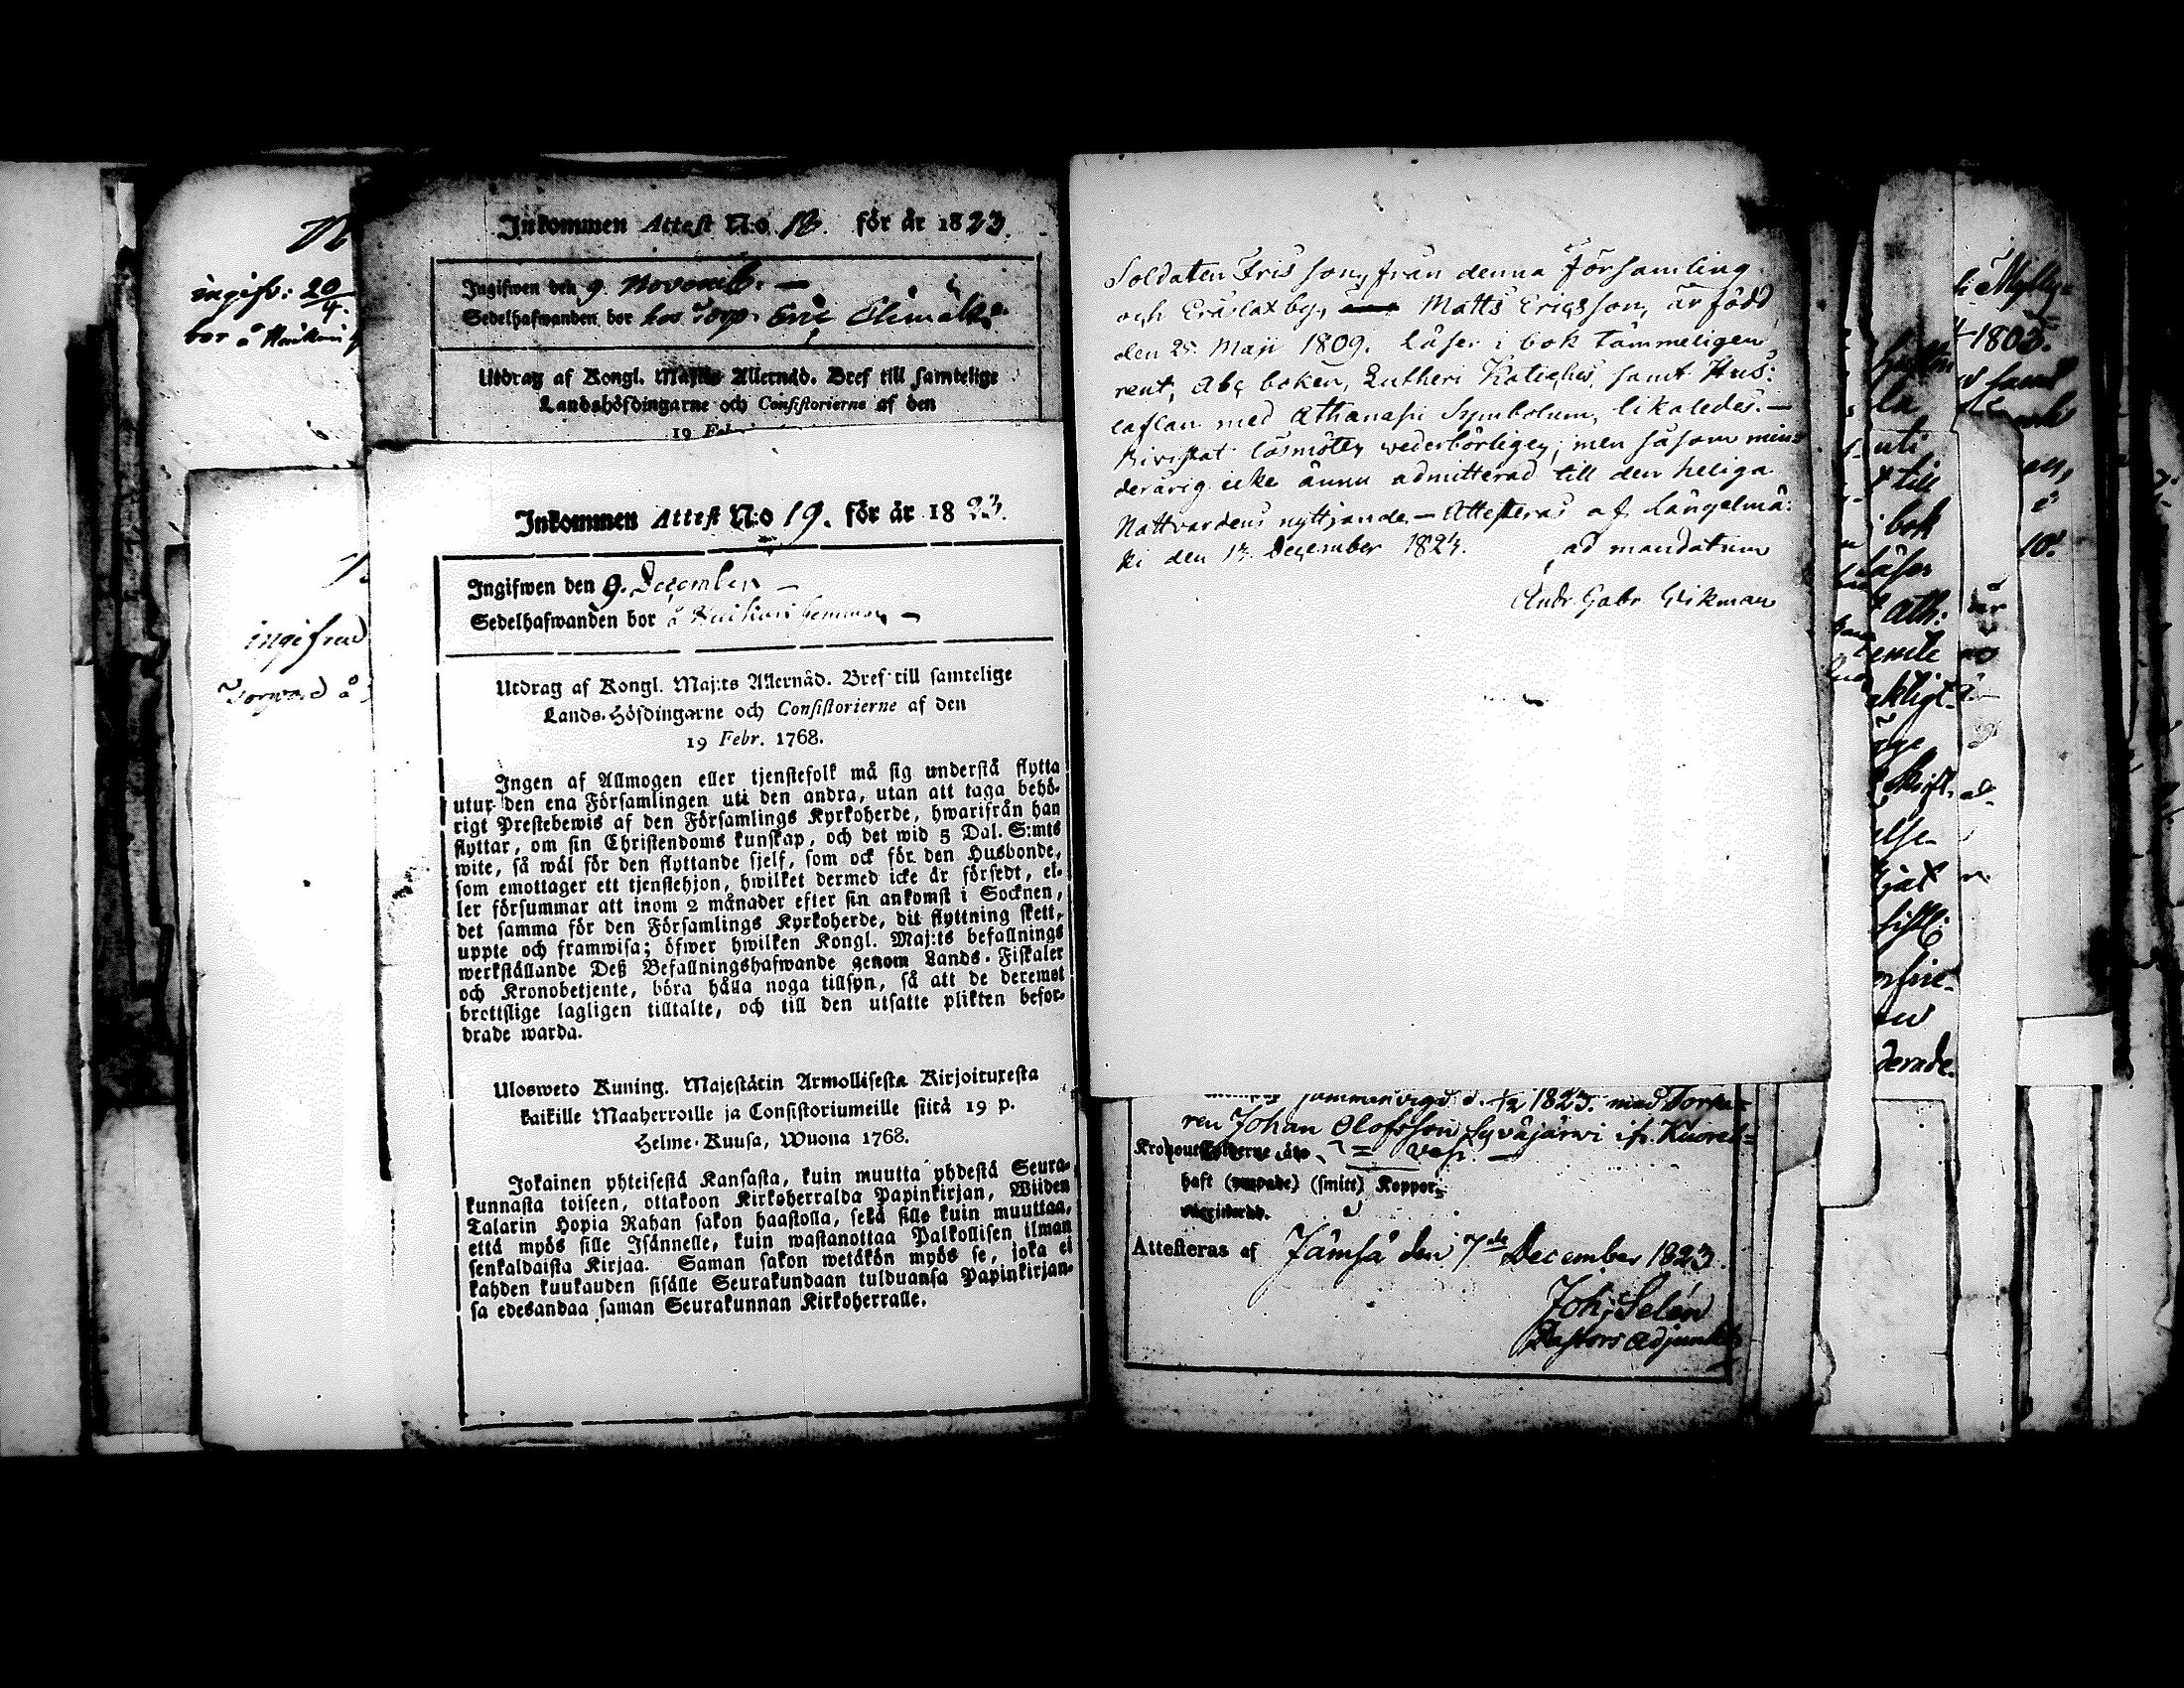 ingifv: 20/4
bor å
ingifven
Torpard å
Inkommen Attest N:o 18. för år 1823.
Ingifwen den 9 Novemb. —
Sedelhafwanden bor hos Torp. Eric
Utdrag af Kongl. Maj:ts Allernåd. Bref till samtelige
Landshöfdingarne och Consistorierne af den
19 Feb
Inkommen Attest N:o 19. för år 1823.
Ingifwen den 9. December —
Sedelhafwanden bor å
Utdrag af Kongl. Maj:ts Allernåd. Bref till samtelige
Lands-Höfdingarne och Consistorierne af den
19 Febr. 1768.
Ingen af Allmogen eller tjenstefolk må sig understå flytta
utur den ena Församlingen uti den andra, utan att taga behö-
rigt Prestebewis af den Församlings Kyrkoherde, hwarifrån han
flyttar, om sin Christendoms kunskap, och det wid 5 Dal. S:mts
wite, så wäl för den flyttande sjelf, som ock för den Husbonde,
som emottager ett tjenstehjon, hwilket dermed icke är försedt, el-
ler försummar att inom 2 månader efter sin ankomst i Socknen,
det samma för den Församlings Kyrkoherde, dit flyttning skett,
uppte och framwisa; öfwer hwilken Kongl. Maj:ts befallnings
werkställande Deß Befallningshafwande genom Lands-Fiskaler
och Kronobetjente, böra hålla noga tillsyn, så att de deremot
brottslige lagligen tilltalte, och till den utsatte plikten befor-
drade warda.
Ulosweto Kuning. Majestätin Armollisesta Kirjoituxesta
kaikille Maaherroille ja Consistoriumeille siitä 19 p.
Helme-Kuusa, Wuona 1768.
Jokainen yhteisestä Kansasta, kuin muutta yhdestä Seura-
kunnasta toiseen, ottakoon Kirkoherralda Papinkirjan, Wiiden
Talarin Hopia Rahan sakon haastolla, sekä sille kuin muuttaa,
että myös sille Isännelle, kuin wastanottaa Palkollisen ilman
senkaldaista Kirjaa. Saman sakon wetäkön myös se, joka ei
kahden kuukauden sisälle Seurakundaan tulduansa Papinkirjan-
sa edesandaa saman Seurakunnan Kirkoherralle.
Soldaten Fris son, från denna Församling
och Eräslax by, Matts Ericsson, är född
den 25 Maji 1809. Läser i bok tämmeligen
rent, Abc boken, Lutheri Kateches, samt Hus:
taflan med Athanasii Symbolum, likaledes. —
Bivistat läsmöten wederbörligen; men såsom min=
derårig icke ännu admitterad till den heliga
Nattvardens nyttjande. — Attesteras af Längelmä:
ki den 1 December 1823. ad mandatum
Andr. Gabr. Wikman
sammanvigd d. 1823. med Torpa=
ren Johan Olofsson Syväjärwi ifr. Kuorel=
Kronoutskylderne äro vesi. —
haft (ympade) (smitt) Koppor.
vaccinerad.
Attesteras af Jämsä den 7de December 1823.
Joh. Selén
Pastors Adjunkt
1803.
uti
till
i bok
läser
Ath:
derade.